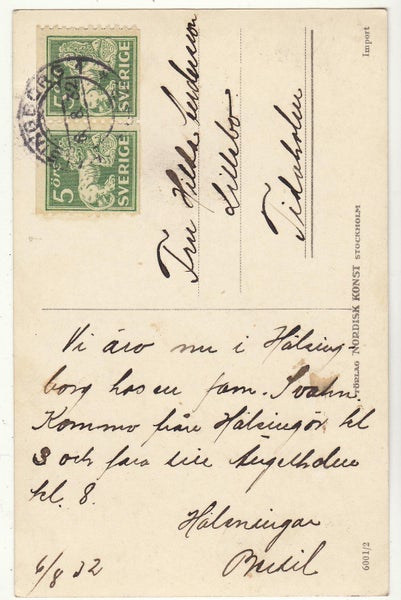 Vi äro nu i Hälsing-
borg hos en fam. Svahn.
Komma från Hälsingör kl
3 och fara till Ängelholm
kl. 8.
Hälsningar
6/8 32
Fru Hilda
Lillebo
Tidaholm
5 ÖRE SVERIGE
5 ÖRE SVERIGE
Import
FÖRLAG NORDISK KONST STOCKHOLM
6001/2